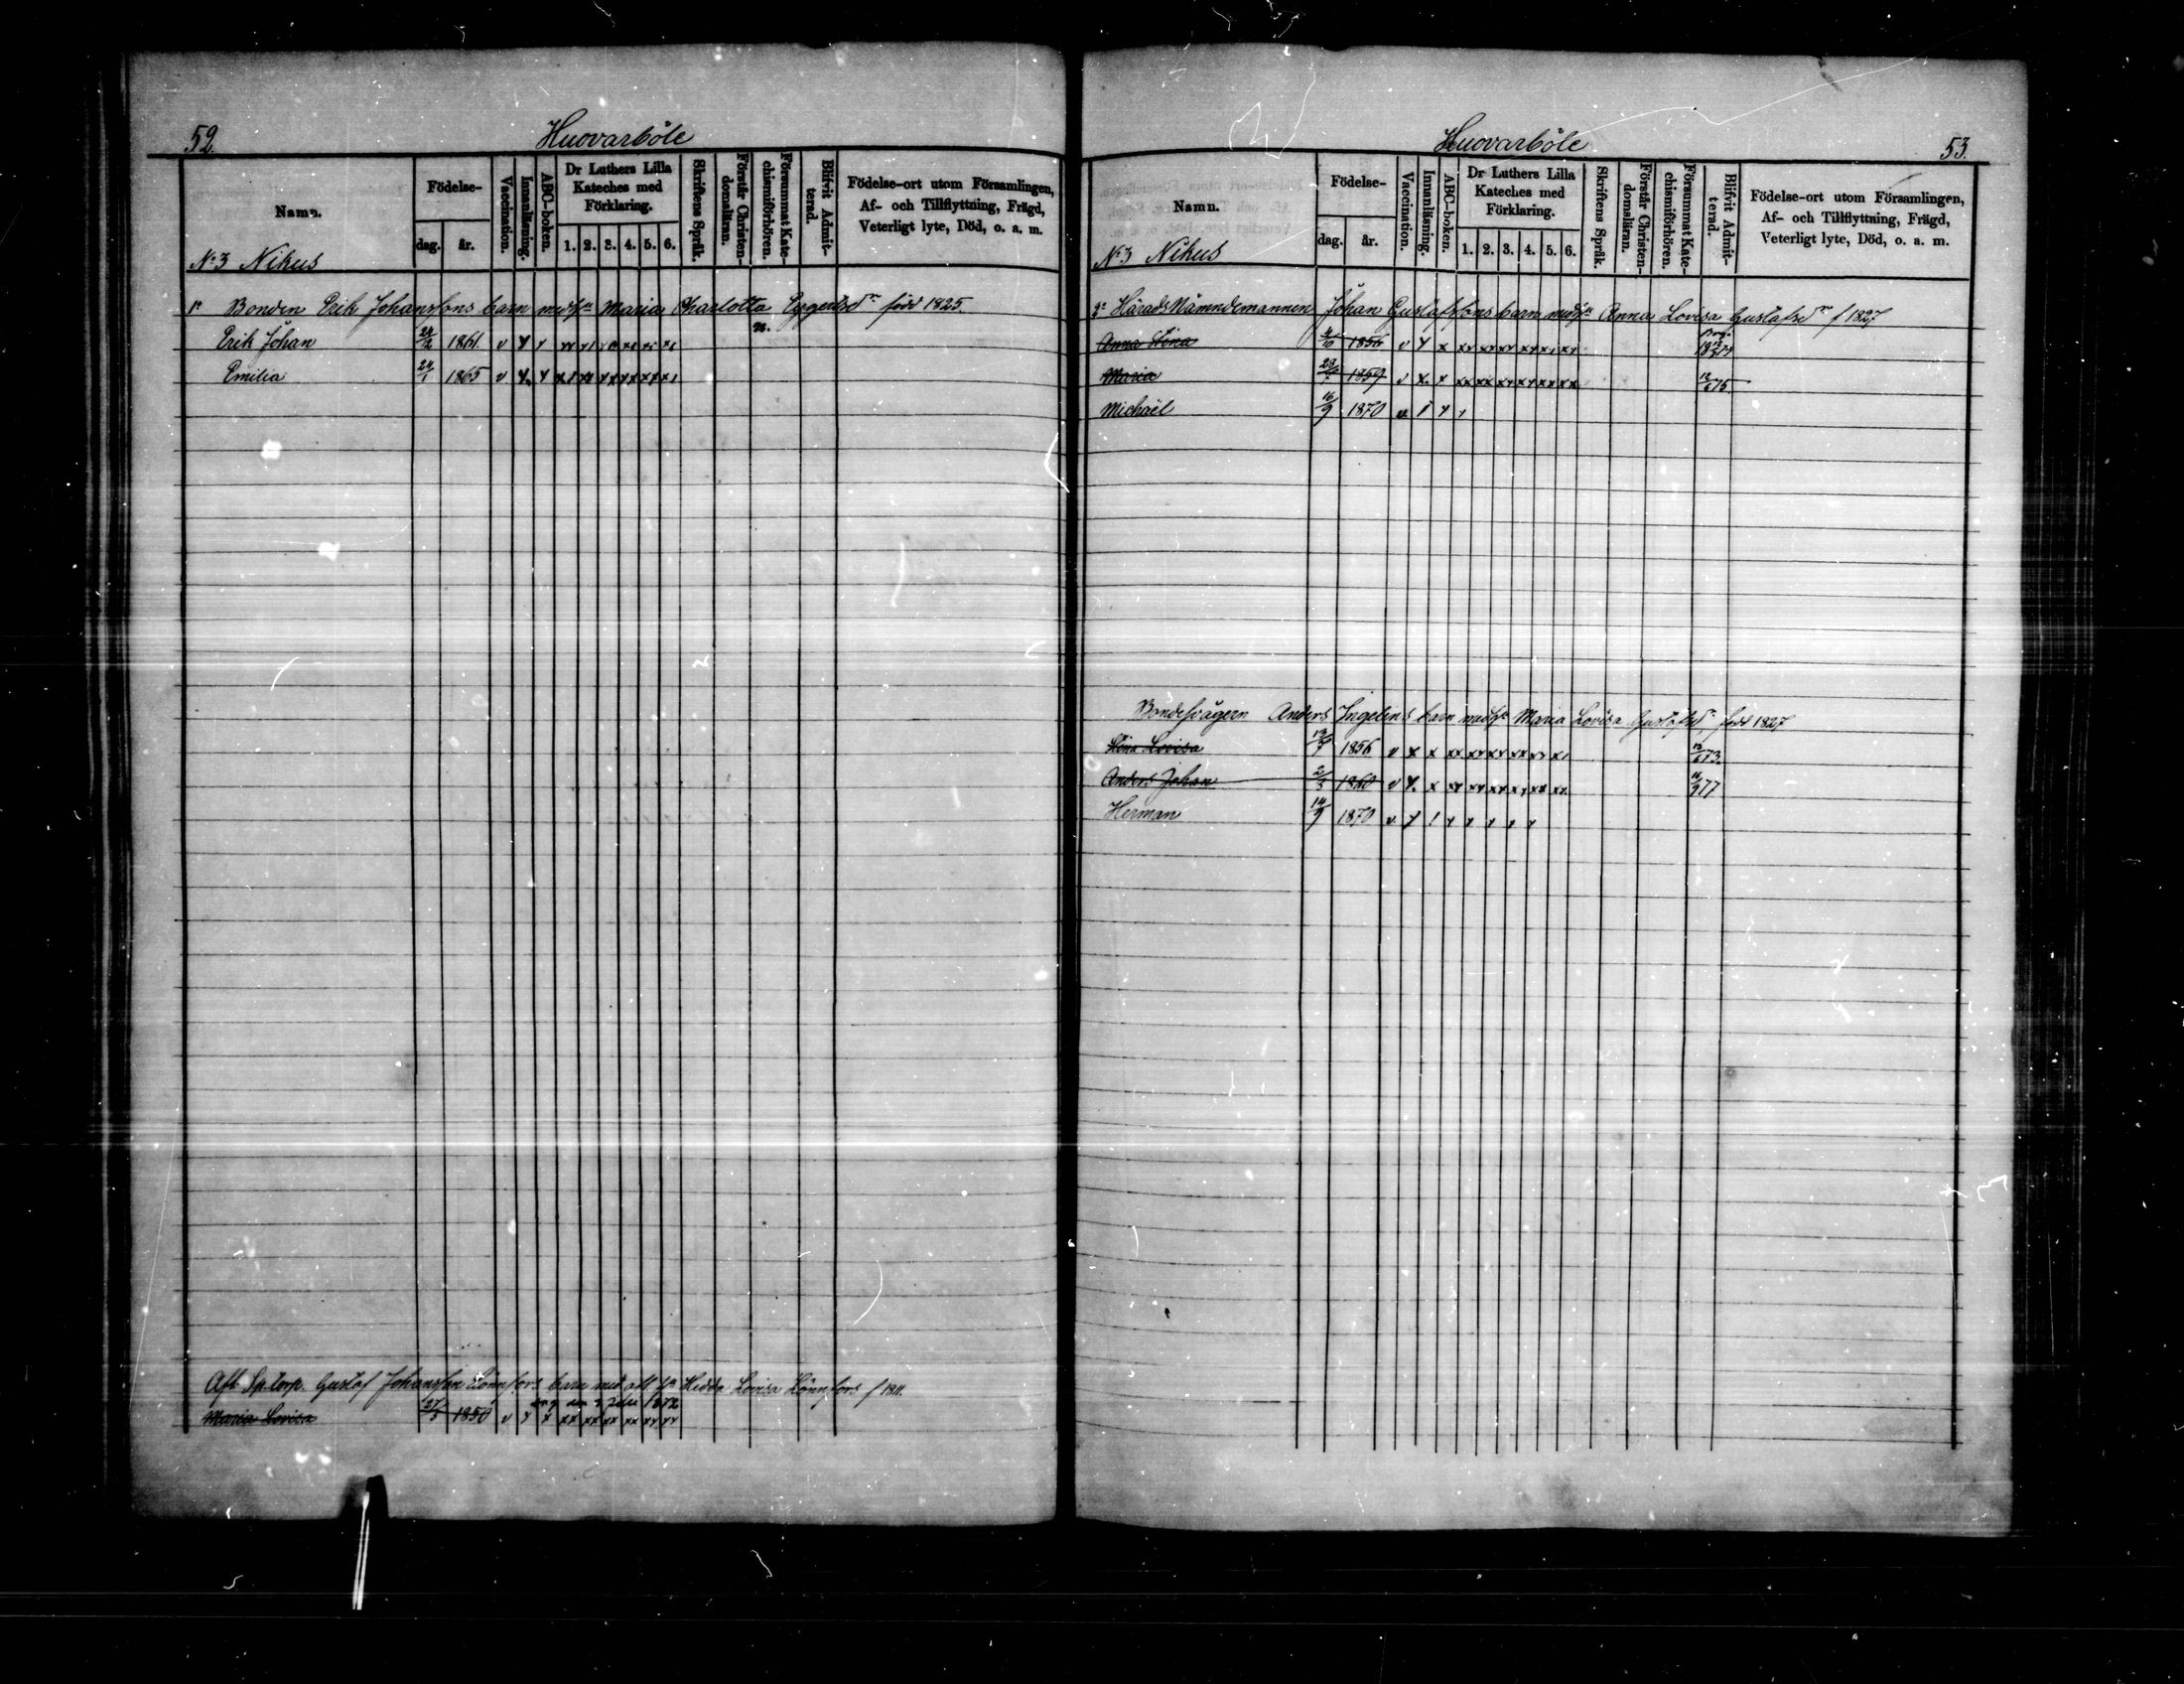 52. Huovarböle
Namn.
Födelse-
dag. år.
Vaccination.
Innanläsning.
ABC-boken.
Dr Luthers Lilla
Kateches med
Förklaring.
1. 2. 3. 4. 5. 6.
Skriftens Språk.
Förstår Christen-
domsläran.
Försummat Kate-
chismiförhören.
Blifvit Admit-
terad.
Födelse-ort utom Församlingen,
Af- och Tillflyttning, Frägd,
Veterligt lyte, Död, o. a. m.
No 3 Nikus
1o Bonden Erik Johanssons barn med hu Maria Charlotta född 1825.
Erik Johan 24/2 1861 v
Emilia 24/1 1865 v
Aft. Sp. torp. Gustaf Johansson Lönnfors barn med aft hu Hedda Lovisa Lönnfors f 1811.
Maria Lovisa 27/3 1850 v
Huovarböle 53.
Namn.
Födelse-
dag. år.
Vaccination.
Innanläsning.
ABC-boken.
Dr Luthers Lilla
Kateches med
Förklaring.
1. 2. 3. 4. 5. 6.
Skriftens Språk.
Förstår Christen-
domsläran.
Försummat Kate-
chismiförhören.
Blifvit Admit-
terad.
Födelse-ort utom Församlingen,
Af- och Tillflyttning, Frägd,
Veterligt lyte, Död, o. a. m.
No 3 Nikus
2o Härads Nämndemannen Johan Gustafssons barn med hu Anna Lovisa Gustafsdr f 1827
Anna Stina 1856 v
Maria 1859 v
Michaël 16/9 1870
Bondesvågern Anders Ingelins barn med hu Maria Lovisa Gustafsdr född 1827
Stina Lovisa 1856 v
Anders Johan 1860 v
Herman 14/9 1870 v